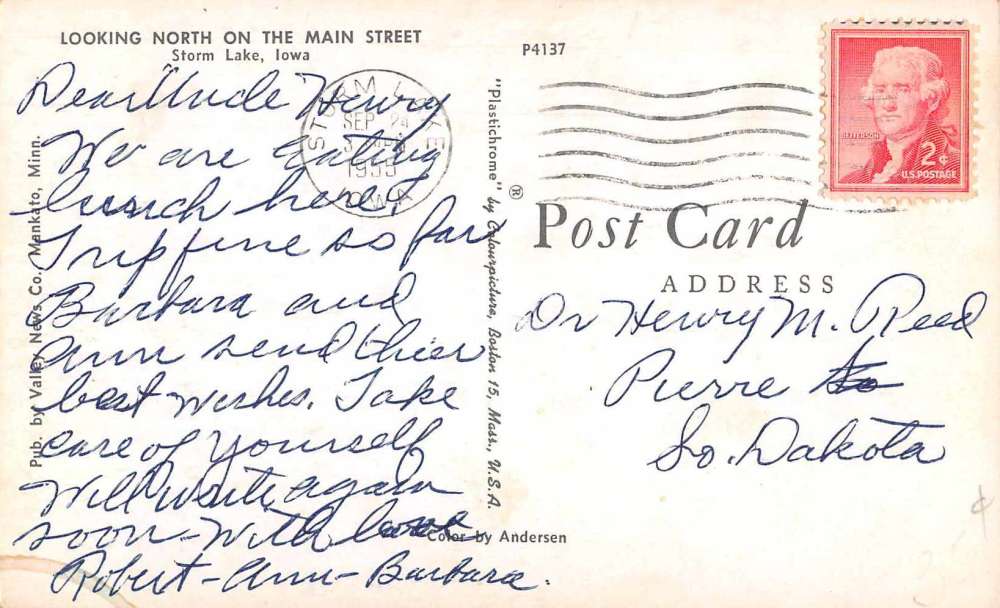 LOOKING NORTH ON THE MAIN STREET
Storm Lake, Iowa
Dear Uncle Henry
We are eating
lunch here.
Trip fine so far
Barbara and
Ann send their
best wishes. Take
care of yourself
Will write again
soon - With love
Robert - Ann - Barbara.
Pub. by Valley News Co., Mankato, Minn.
"Plastichrome" ® by Colourpicture, Boston 15, Mass., U.S.A.
Color by Andersen
P4137
STORM LAKE
SEP 24
IOWA
JEFFERSON
2¢
U.S. POSTAGE
Post Card
ADDRESS
Dr Henry M. Reed
Pierre
So. Dakota
¢